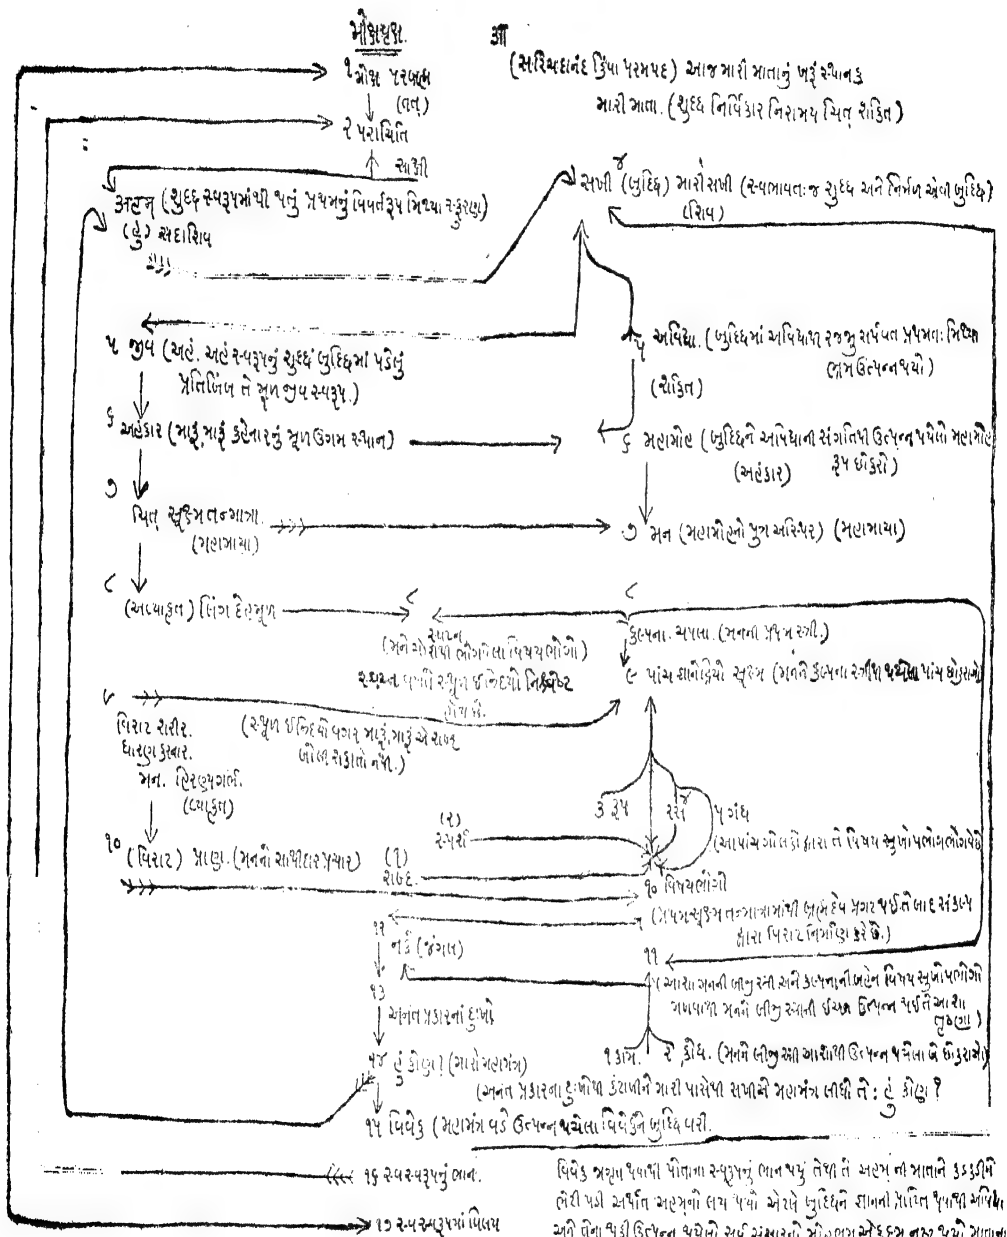 મોક્ષવૃક્ષ.
ॐ
(સચ્ચિદાનંદ કિંવા પરમપદ) આજ મારી માતાનું ખરૂં સ્થાનક
મારી માતા. (શુદ્ધ નિર્વિકાર નિરામય ચિત્ શક્તિ)
૧ મોક્ષ પરબ્રહ્મ
(તત્)
૨ પરાચિતિ
સાક્ષી
અહમ્ (શુદ્ધ સ્વરૂપમાંથી થનું પ્રથમનું વિવર્તરૂપ મિથ્યા સ્ફુરણ)
(હું) સદાશિવ
૪
સખી (બુદ્ધિ) મારી સખી (સ્વભાવતઃ જ શુદ્ધ અને નિર્મળ એવી બુદ્ધિ)
(શિવ)
૫ જીવ (અહં. અહં સ્વરૂપનું શુદ્ધ બુદ્ધિમાં પડેલું
પ્રતિબિંબ તે મૂળ જીવ સ્વરૂપ.)
૫ અવિદ્યા. (બુદ્ધિમાં અવિદ્યાથી રજ્જુ સર્પવત પ્રથમતઃ મિથ્યા
ભ્રમ ઉત્પન્ન થયો)
(શક્તિ)
૬ અહંકાર (મારૂં, મારૂં કહેનારનું મૂળ ઉગમ સ્થાન)
૬ મહામોહ (બુદ્ધિને અવિદ્યાની સંગતિથી ઉત્પન્ન થયેલો મહામોહ
(અહંકાર) રૂપ છોકરો)
૭
ચિત્ સૂક્ષ્મ તન્માત્રા.
(મહામાયા)
૭ મન (મહામોહનો પુત્ર અસ્થિર) (મહામાયા)
૮
(અવ્યાકૃત) લિંગ દેહમૂળ
૮
સ્વપ્ન
(મને ચોરીથી ભોગવેલા વિષયભોગો)
સ્વપ્ન સ્થૂળ ઇન્દ્રિયો નિશ્ચેષ્ટ
હોય છે.
૮
કલ્પના. ચપલા. (મનની પ્રથમ સ્ત્રી.)
૯ પાંચ જ્ઞાનેન્દ્રિયો સૂક્ષ્મ (મનને કલ્પના સ્ત્રીથી થયેલા પાંચ છોકરાઓ)
૯
વિરાટ શરીર.
ધારણ કરનાર.
મન. હિરણ્યગર્ભ.
(વ્યાકૃત)
(સ્થૂળ ઇન્દ્રિયો વગર મારૂં, મારૂં એ શબ્દ
બોલી શકાતો નથી.)
૩ રૂપ
૪ રસ
૫ ગંધ
(૨)
સ્પર્શ
(આ પાંચ ગોલકો દ્વારા તે વિષય સુખોપભોગ ભોગવે છે
૧૦
(વિરાટ) પ્રાણ. (મનનો સાથીદાર પ્રચાર)
(૧)
શબ્દ.
૧૦ વિષયભોગી
(પ્રથમ સૂક્ષ્મ તન્માત્રામાંથી બ્રહ્મદેવ પ્રગટ થઈ તે બાદ સંકલ્પ
દ્વારા વિરાટ નિર્માણ કરે છે.)
૧૨
નર્ક (જંગલ)
૧૧
આશા મનની બીજી સ્ત્રી અને કલ્પનાની બહેન વિષય સુખોપભોગો
મળવાથી મનને બીજી સ્ત્રીની ઈચ્છા ઉત્પન્ન થઈ તે આશા
તૃષ્ણા)
૧૩
અનંત પ્રકારનાં દુઃખો
૧ કામ. ૨ ક્રોધ. (મનને બીજી સ્ત્રી આશાથી ઉત્પન્ન થયેલા બે છોકરાઓ)
૧૪ હું કોણ? (મારો મહામંત્ર)
(અનંત પ્રકારના દુઃખોથી કંટાળીને મારી પાસેથી સખીએ મહામંત્ર લીધો તે: હું કોણ?
૧૫ વિવેક (મહામંત્ર વડે ઉત્પન્ન થયેલા વિવેકને બુદ્ધિ વરી.
૧૬ સ્વ સ્વરૂપનું ભાન.
વિવેક જાગૃત થવાથી પોતાના સ્વરૂપનું ભાન થયું તેથી તે અહમ્ ની માતાને કડકડીને
ભેટી પડી અર્થાત અહમનો લય થયો એટલે બુદ્ધિને જ્ઞાનની પ્રાપ્તિ થવાથી અવિદ્યા
૧૭ સ્વ સ્વરૂપમાં વિલય
અને તેના થકી ઉત્પન્ન થયેલો સર્વ સંસારનો મોહ ભ્રમ એકદમ નષ્ટ થયો